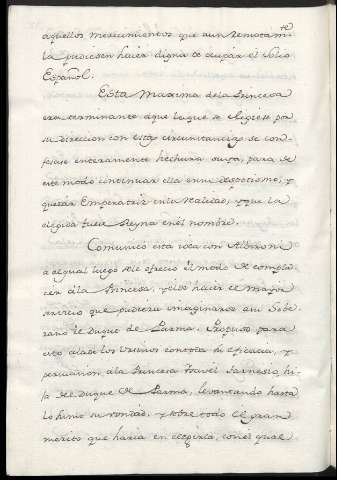 aquellos merecimientos que aun remotamte
la pudiesen hacer digna de ocupár el Solio
Español.
Esta Maxima de la Princesa
era terminante a que la que se eligiese pa
su direccion con estas circunstancias se con-
fesase enteramente hechura suya, para de
este modo continuar ella en su despotismo, y
quedar Emperatriz en la realidad, y que la
elegida fuera Reyna en el nombre.
Comunicó esta idea con Alberoni
a el qual luego se le ofreció el modo de compla-
cer á la Princesa, y de hacer el mayor
servicio que pudiera imaginarse a su Sobe-
rano el Duque de Parma. Propuso para
esto a la de los Ursinos con toda su eficacia, y
persuasion á la Princesa Isavel Farnesio, hi-
ja del Duque de Parma, levantando hasta
lo sumo su vondad, y sobre todo el gran
merito que haria en elegirla, con el qual